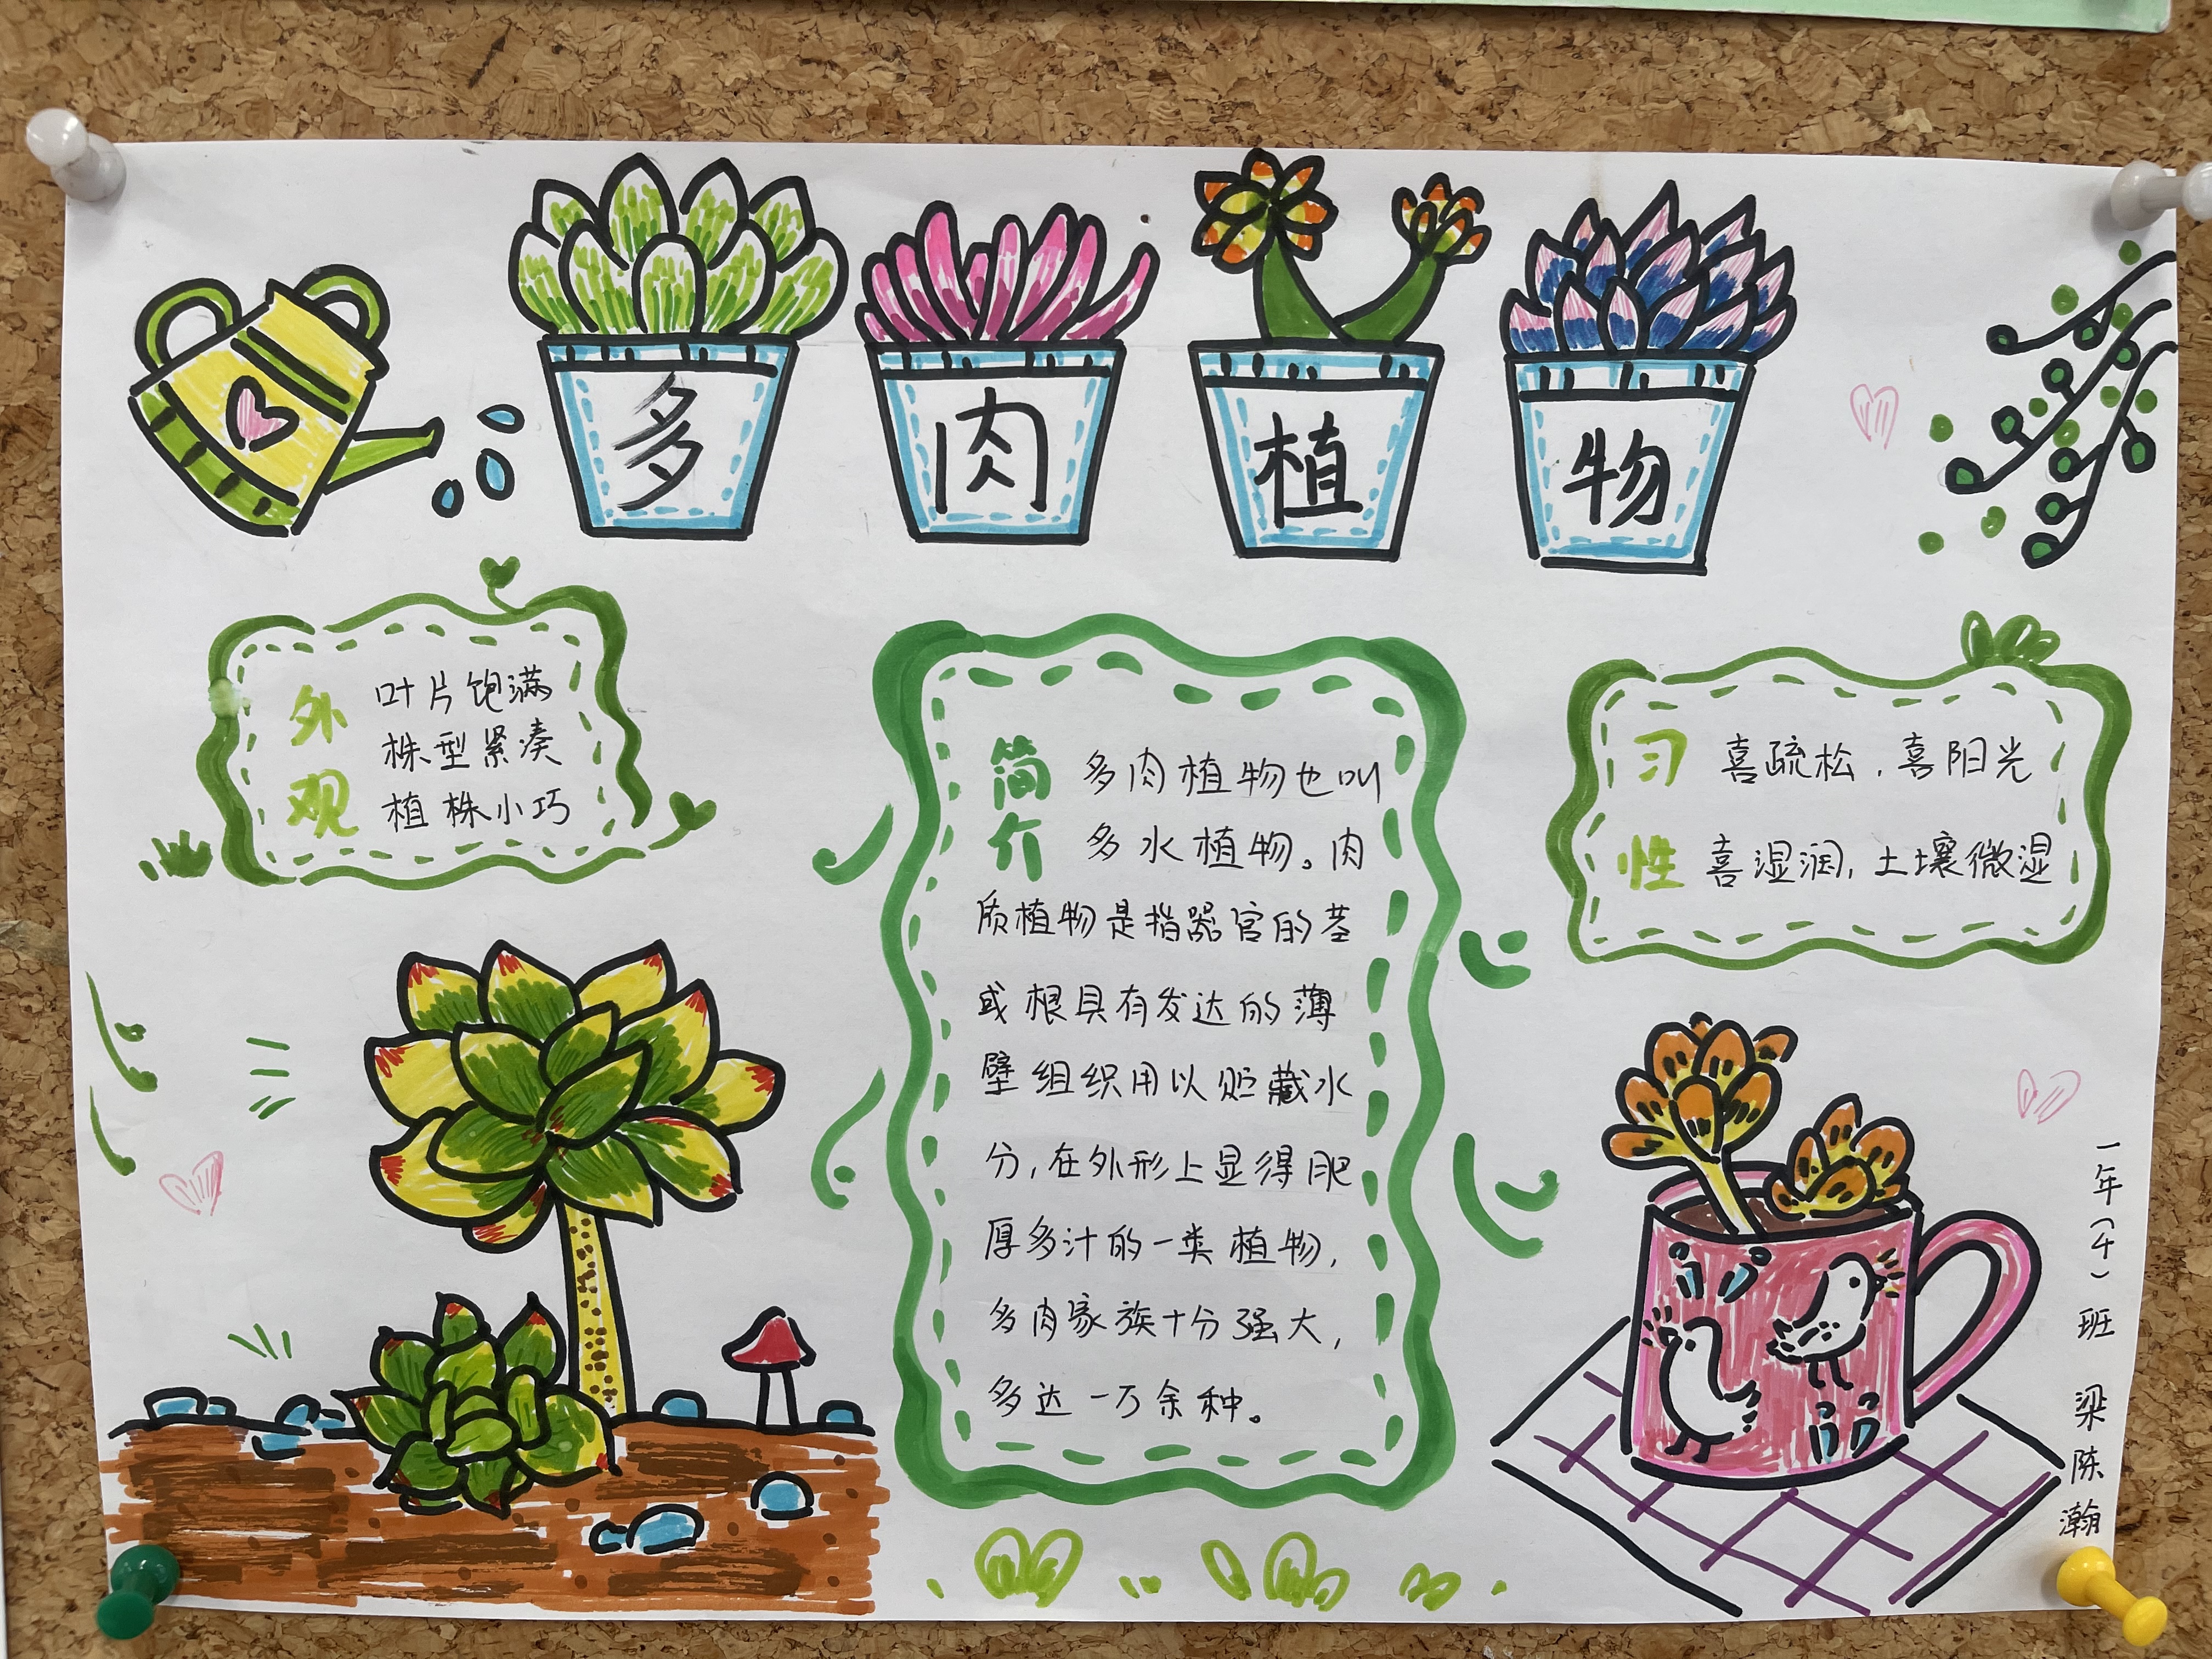 多肉植物
外观
叶片饱满
株型紧凑
植株小巧
简介
多肉植物也叫
多水植物。肉
质植物是指器官的茎
或根具有发达的薄
壁组织用以贮藏水
分,在外形上显得肥
厚多汁的一类植物,
多肉家族十分强大,
多达一万余种。
习性
喜疏松,喜阳光
喜湿润,土壤微湿
一年(4)班 梁陈瀚